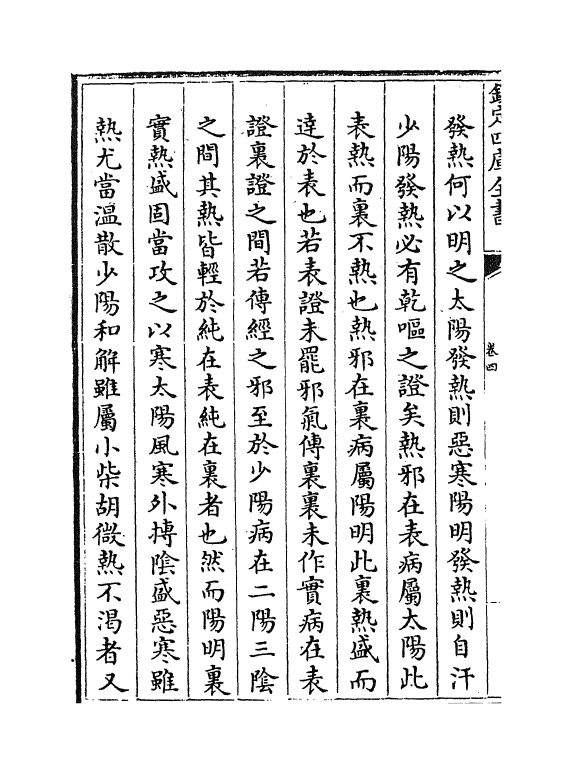 欽定四庫全書
卷四
發熱何以明之太陽發熱則惡寒陽明發熱則自汗
少陽發熱必有乾嘔之證矣熱邪在表病屬太陽此
表熱而裏不熱也熱邪在裏病屬陽明此裏熱盛而
達於表也若表證未罷邪氣傳裏裏未作實病在表
證裏證之間若傳經之邪至於少陽病在二陽三陰
之間其熱皆輕於純在表純在裏者也然而陽明裏
實熱盛固當攻之以寒太陽風寒外摶陰盛惡寒雖
熱尤當溫散少陽和解雖屬小柴胡微熱不渴者又